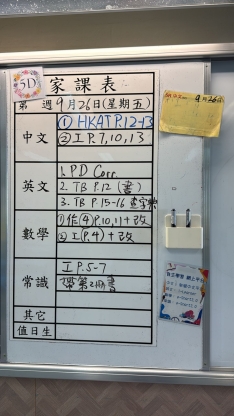 5D
家課表
第 週 9月26日(星期五)
中文
① HKAT P.12-13
② 工 P.7,10,13
英文
1. PD Corr.
2. TB P.12 (書)
3. TB P.15-16 查字典
數學
① 作(4) P.10,11+改
② 工(P.4)+改
常識
工 P.5-7
帶第2冊書
其它
值日生
9月26日